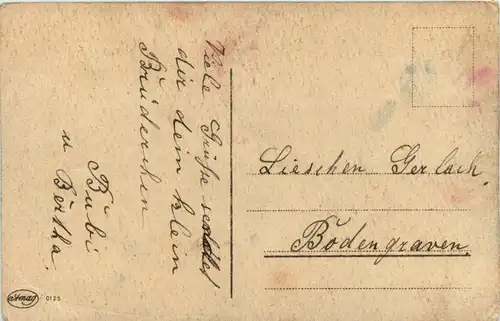 Viele Grüße sendet
dir dein klein
Brüderchen
Bubi
u Bertha.
Lieschen Gerlach.
Bödengraven.
0125